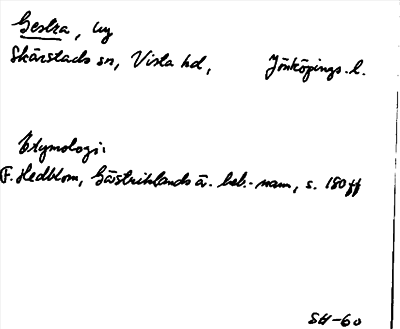 Gestra, by
Skärstads sn, Vista hd, Jönköpings l.
Etymologi:
F. Hedblom, Gästriklands ä. beb.-namn, s. 180 ff
SH-60